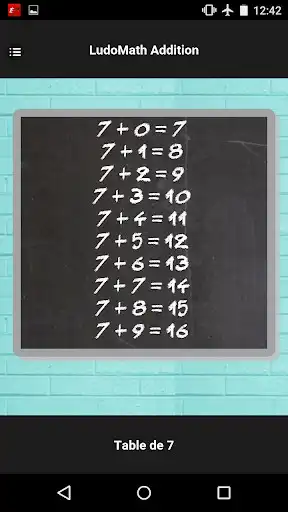 12:42
LudoMath Addition
7 + 0 = 7
7 + 1 = 8
7 + 2 = 9
7 + 3 = 10
7 + 4 = 11
7 + 5 = 12
7 + 6 = 13
7 + 7 = 14
7 + 8 = 15
7 + 9 = 16
Table de 7